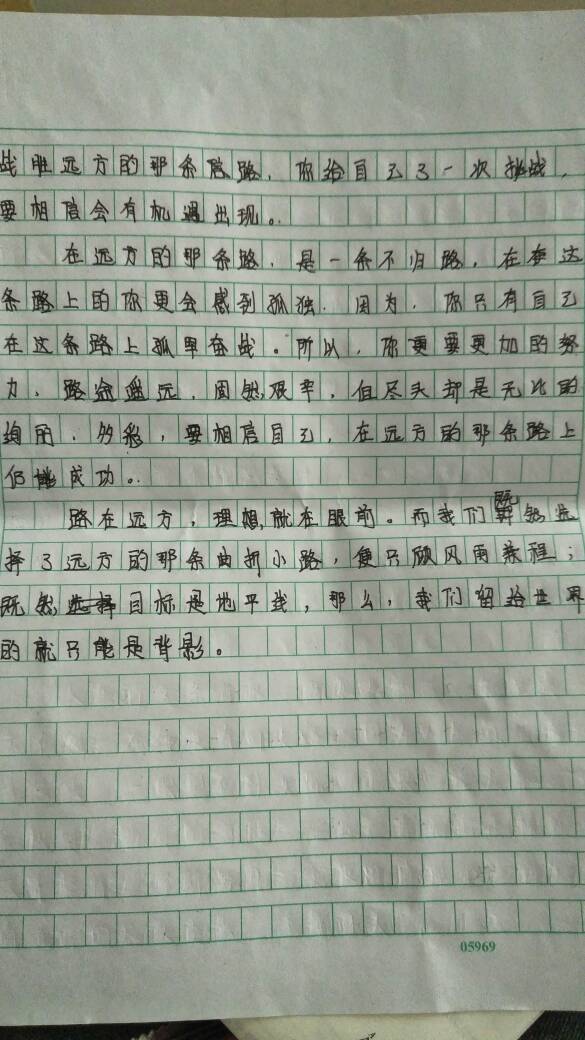 战胜远方的那条路，你给自己了一次挑战，
要相信会有机遇出现。
在远方的那条路，是一条不归路，在奔这
条路上的你更会感到孤独，因为，你只有自己
在这条路上孤军奋战。所以，你更要更加的努
力，路途遥远，固然艰辛，但尽头却是无比的
绚丽，多彩，要相信自己，在远方的那条路上
仍能成功。
路在远方，理想就在眼前。而我们既然选
择了远方的那条曲折小路，便只顾风雨兼程；
既然目标是地平线，那么，我们留给世界
的就只能是背影。
05969